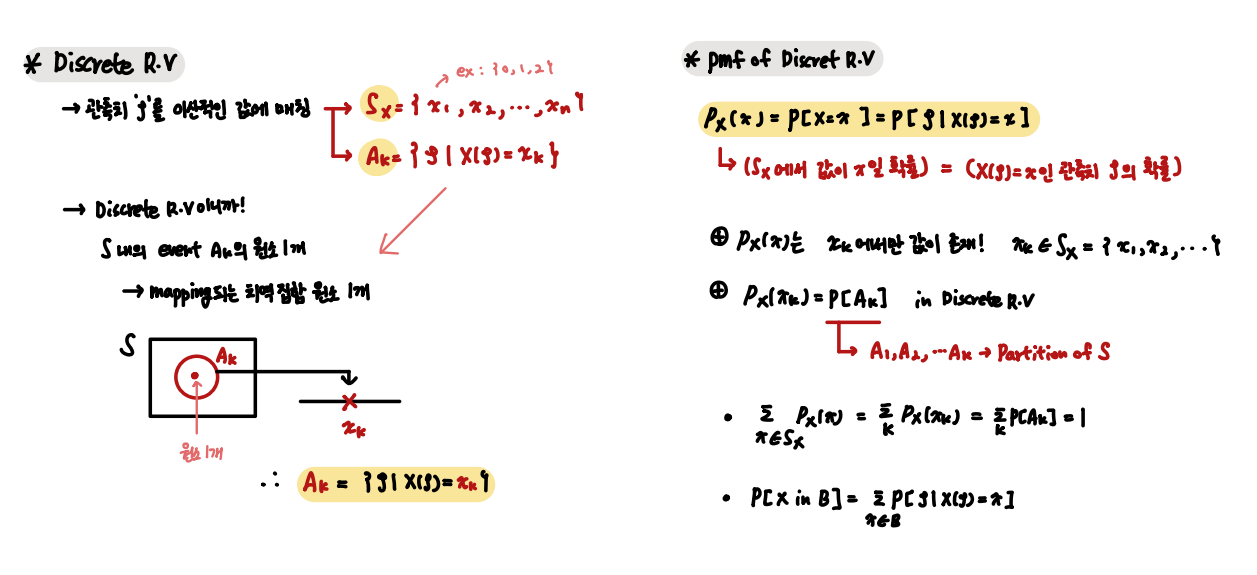 * Discrete R.V
ex : {0, 1, 2}
→ 관측치 'ζ'를 이산적인 값에 매칭 → Sx = { x₁, x₂, ⋯, xn }
→ Ak = { ζ | X(ζ) = xk }
→ Discrete R.V이니까!
S내의 event Ak의 원소 1개
→ mapping되는 치역집합 원소 1개
S
Ak
xk
원소 1개
∴ Ak = { ζ | X(ζ) = xk }
* pmf of Discret R.V
Px(x) = P[X=x] = P[ζ | X(ζ)=x]
↳ (Sx에서 값이 x일 확률) = (X(ζ)=x인 관측치 ζ의 확률)
⊕ Px(x)는 xk에서만 값이 존재! xk ∈ Sx = { x₁, x₂, ⋯ }
⊕ Px(xk) = P[Ak] in Discrete R.V
↳ A₁, A₂, ⋯Ak → Partition of S
• Σ x∈Sx Px(x) = Σ k Px(xk) = Σ k P[Ak] = 1
• P[X in B] = Σ x∈B P[ζ | X(ζ)=x]